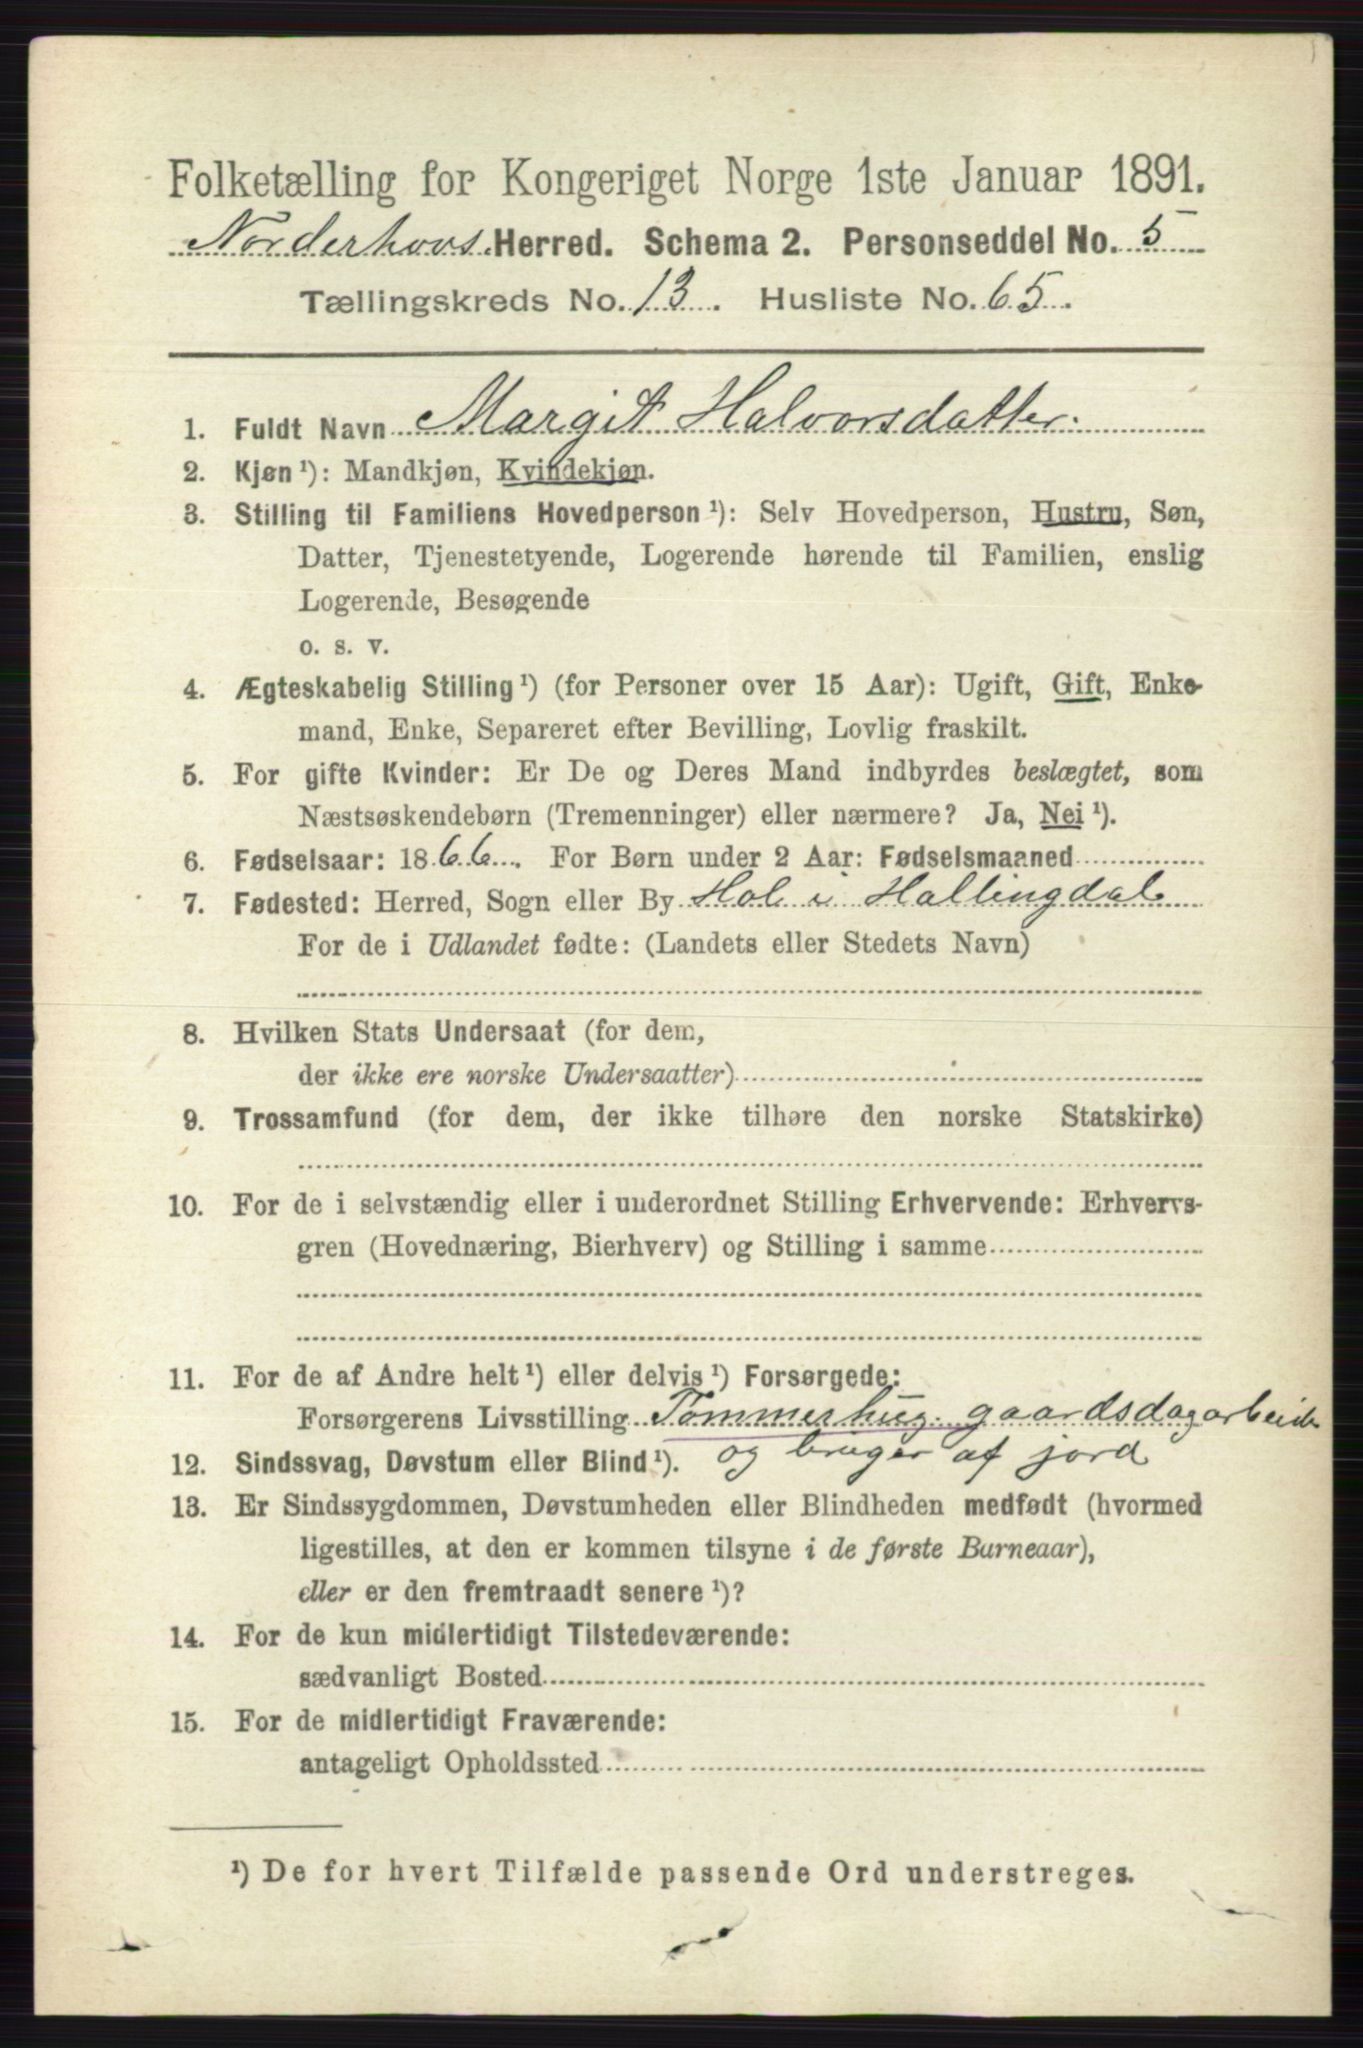 Folketælling for Kongeriget Norge 1ste Januar 1891.
Norderhovs Herred. Schema 2. Personseddel No. 5
Tællingskreds No. 13. Husliste No. 65.
1. Fuldt Navn Margit Halvorsdatter.
2. Kjøn ¹): Mandkjøn, Kvindekjøn.
3. Stilling til Familiens Hovedperson ¹): Selv Hovedperson, Hustru, Søn,
Datter, Tjenestetyende, Logerende hørende til Familien, enslig
Logerende, Besøgende
o. s. v.
4. Ægteskabelig Stilling ¹) (for Personer over 15 Aar): Ugift, Gift, Enke-
mand, Enke, Separeret efter Bevilling, Lovlig fraskilt.
5. For gifte Kvinder: Er De og Deres Mand indbyrdes beslægtet, som
Næstsøskendebørn (Tremenninger) eller nærmere? Ja, Nei ¹).
6. Fødselsaar: 1866. For Børn under 2 Aar: Fødselsmaaned
7. Fødested: Herred, Sogn eller By Hol i Hallingdal
For de i Udlandet fødte: (Landets eller Stedets Navn)
8. Hvilken Stats Undersaat (for dem,
der ikke ere norske Undersaatter)
9. Trossamfund (for dem, der ikke tilhøre den norske Statskirke)
10. For de i selvstændig eller i underordnet Stilling Erhvervende: Erhvervs-
gren (Hovednæring, Bierhverv) og Stilling i samme
11. For de af Andre helt ¹) eller delvis ¹) Forsørgede:
Forsørgerens Livsstilling Tømmerhug. gaardsdagarbeide
12. Sindssvag, Døvstum eller Blind ¹). og bruger af jord
13. Er Sindssygdommen, Døvstumheden eller Blindheden medfødt (hvormed
ligestilles, at den er kommen tilsyne i de første Barneaar),
eller er den fremtraadt senere ¹)?
14. For de kun midlertidigt Tilstedeværende:
sædvanligt Bosted
15. For de midlertidigt Fraværende:
antageligt Opholdssted
¹) De for hvert Tilfælde passende Ord understreges.